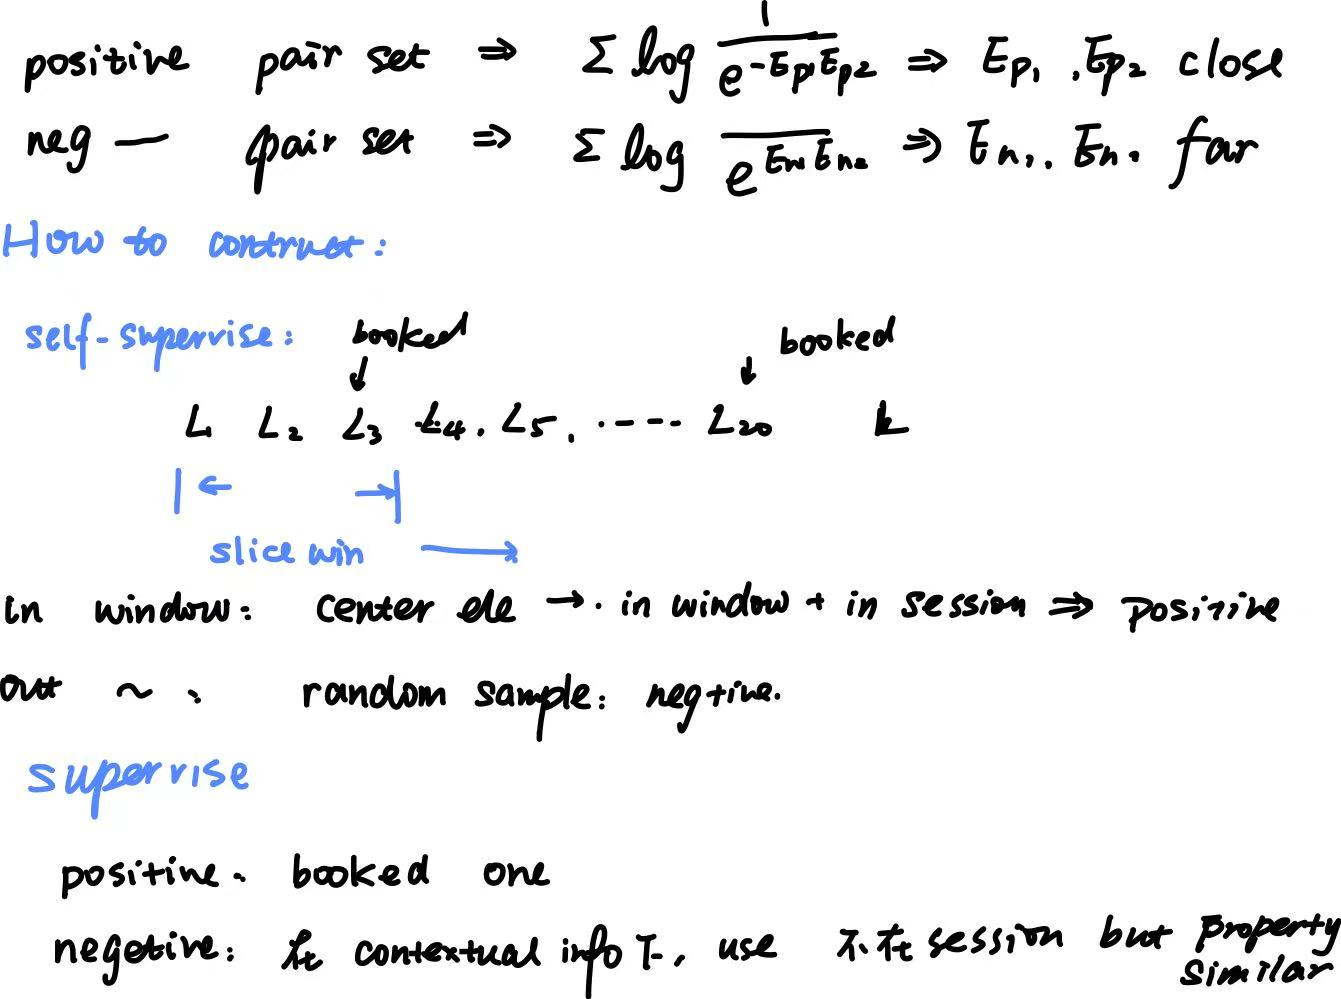 positive pair set ⇒ Σ log 1/e^{-Ep1Ep2} ⇒ Ep1, Ep2 close
neg — pair set ⇒ Σ log 1/e^{En1En2} ⇒ En1, En2 far
How to contruct:
self-supervise: booked booked
L1 L2 L3 L4, L5, ---- L20
slice win →
in window: center ele → in window + in session ⇒ positive
out ~ random sample: negtive.
supervise
positive. booked one
negetive: 在 contextual info 下, use 不在 session but property similar